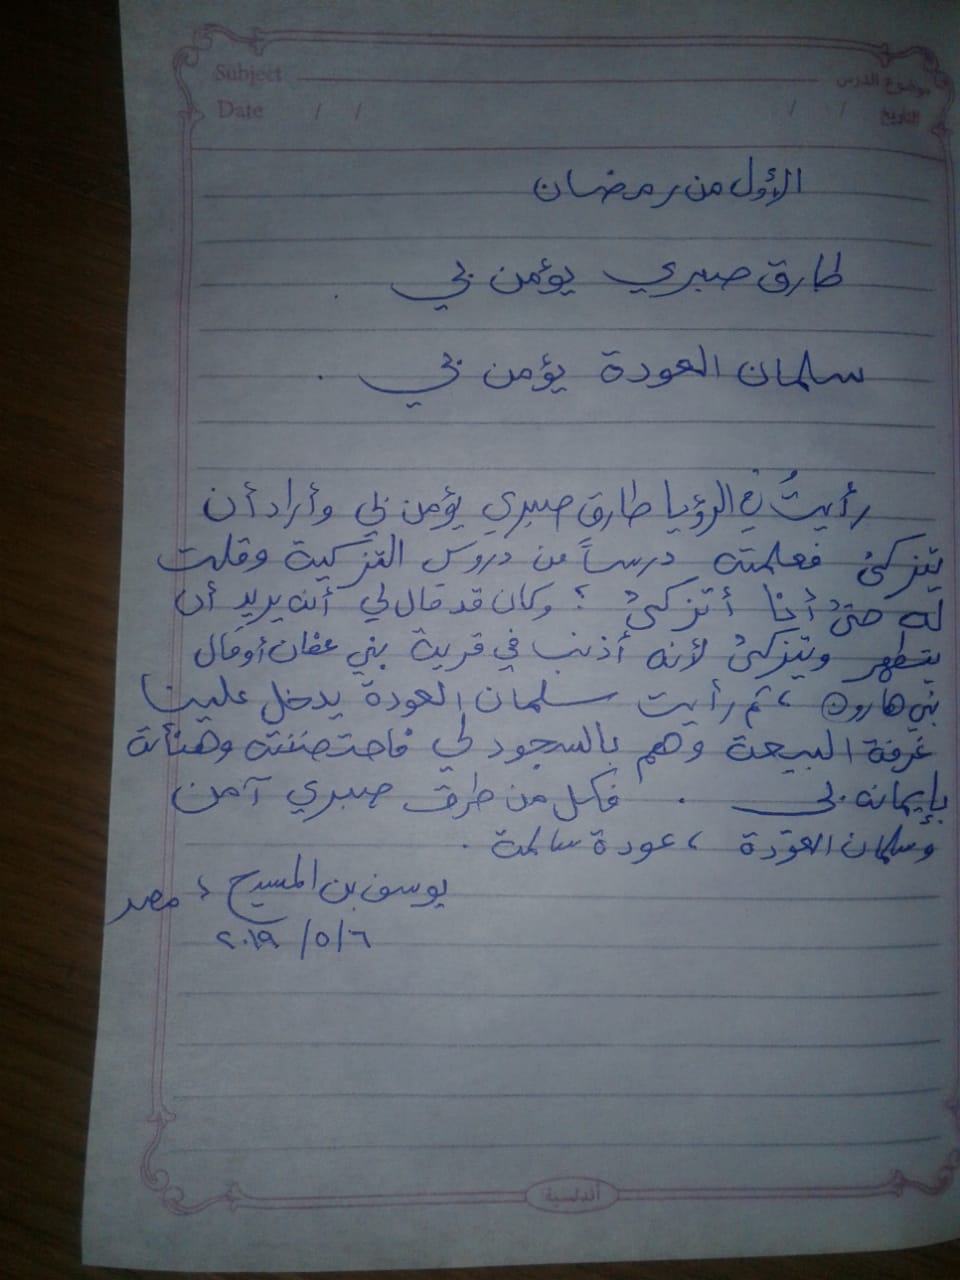 Subject موضوع الدرس
Date / / / / التاريخ
الأول من رمضان
طارق صبري يؤمن بي .
سلمان العودة يؤمن بي .
رأيتُ في الرؤيا طارق صبري يؤمن بي وأراد أن
يتزكىٰ فعلمته درساً من دروس التزكية وقلت
له حتىٰ أنا أتزكىٰ ؟ وكان قد قال لي أنه يريد أن
يتطهر ويتزكىٰ لأنه أذنب في قرية بني عفان أو قال
بني هارون ، ثم رأيت سلمان العودة يدخل علينا
غرفة البيعة وهم بالسجود لي فاحتضنته وهنأته
بإيمانه بي . فكل من طرق صبري آمن
وسلمان العودة ، عودة سالمة .
يوسف بن المسيح ، مصر
٦/٥/٢٠١٩
أندلسية